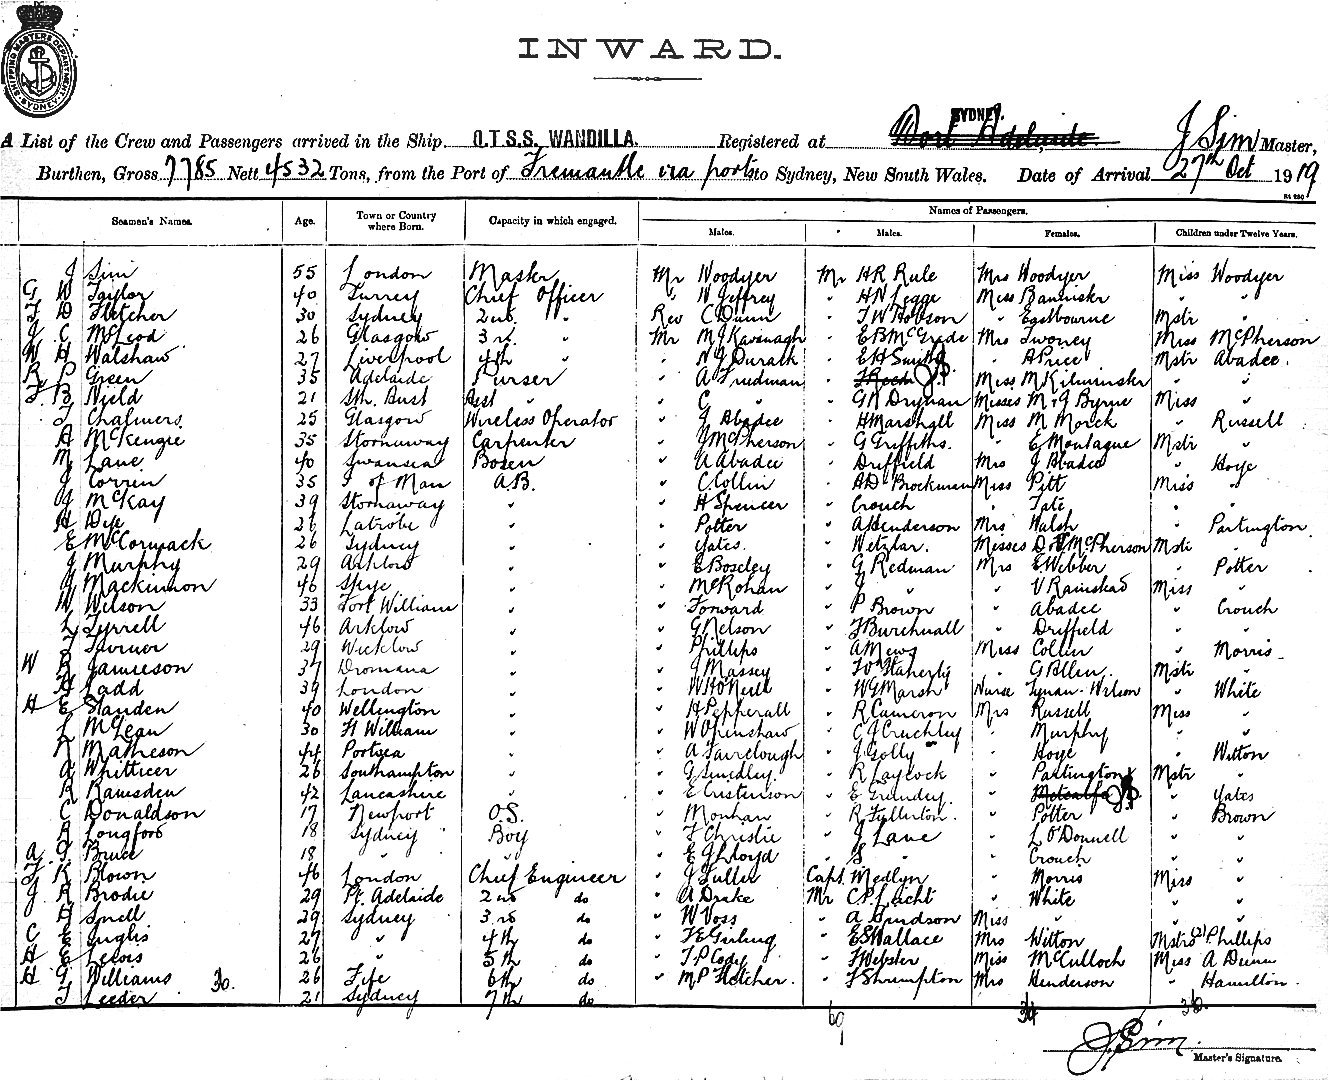 SHIPPING MASTERS DEPARTMENT SYDNEY
INWARD.
SYDNEY.
A List of the Crew and Passengers arrived in the Ship O.T.S.S. WANDILLA. Registered at Port Adelaide J Sim Master,
Burthen, Gross 7785 Nett 4532 Tons, from the Port of Fremantle via ports to Sydney, New South Wales. Date of Arrival 27th Oct 1919
Seamen's Names. Age. Town or Country where Born. Capacity in which engaged. Names of Passengers.
Males. Males. Females. Children under Twelve Years.
J Sim 55 London Master Mr Woodyer Mr HR Rule Mrs Woodyer Miss Woodyer
G W Taylor 40 Surrey Chief Officer " N Jeffrey " HN Legge Miss Bannister " "
F D Fletcher 30 Sydney 2nd " Rev C Dunn " FW Hobson " Eastbourne Mstr "
J C McLeod 26 Glasgow 3rd " Mr MJ Kavanagh " EB McGrade Mrs Twoney Miss McPherson
W H Walshaw 27 Liverpool 4th " " NJ Durack " EH Smith " A Price Mstr Abadee
R P Green 35 Adelaide Purser " A Friedman Miss M Kilminster " "
F B Nield 21 Sth. Aust Asst " " C " " GN Drynan Misses M & J Byrne Miss "
J Chalmers 25 Glasgow Wireless Operator " J Abadee " H Marshall Miss M Morck " Russell
A McKenzie 35 Stornaway Carpenter " J McPherson " G Griffiths. " E Montague Mstr "
M Lane 40 Swansea Bosen " A Abadee " Driffield Mrs J Abadee " Hoye
J Corrin 35 I of Man A.B. " C Collin " AD Brockman Miss Pitt Miss "
J McKay 39 Stornaway " " H Spencer " Crouch " Tate
H Dye 21 Latrobe " " Potter " A Henderson Mrs Walsh " Partington
E McCormack 26 Sydney " " Yates. " Wetzlar. Misses D & V McPherson Mstr "
J Murphy 29 Arklow " " E Boseley " G Redman Mrs E Webber " Potter
J Mackinnon 46 Skye " " McRohan " J " " V Rainshad Miss "
W Wilson 33 Fort William " " Forward " P Brown " Abadee " Crouch
L Tyrrell 46 Arklow " " G Nelson " J Burchnall " Driffield " "
J Turner 29 Wicklow " " Phillips " A Mews Miss Collin " Morris
W R Jamieson 37 Dromana " " J Massey " FO'Flaherty " G Pollen Mstr "
H Ladd 39 London " " WH O'Neill " WG Marsh Nurse Tynan-Wilson " White
H E Standen 40 Wellington " " H Pepperall " R Cameron Mrs Russell Miss "
L McLean 30 Ft William " " W Openshaw " CJ Cruchley " Murphy " "
R Matheson 44 Portsea " " A Fairclough " J Golly " Hoye " Witton
A Whitticer 26 Southampton " " G Smedley " R Laycock " Partington Mstr "
R Ramsden 42 Lancashire " " E Cristenson " E Grundey. " Metcalfe " Yates
C Donaldson 17 Newport O.S. " Monhan " R Fullerton. " Potter " Brown
R Longford 18 Sydney Boy " F Christie " J Lane " L O'Donnell " "
A G Bruce 18 " " " E J Lloyd " S " " Crouch " "
F K Blown 46 London Chief Engineer " J Fuller Capt. Medlyn " Morris Miss "
J R Brodie 29 Pt. Adelaide 2nd do " A Drake Mr CP Leicht " White " "
H Snell 29 Sydney 3rd do " W Voss " A Davidson Miss " " "
C E Inglis 27 " 4th do " FE Girling " ES Wallace Mrs Witton Mstrs 2 Phillips
H E Lewis 26 " 5th do " TP Cody " F Webster Miss McCulloch Miss A Dunn
H G Williams 30. 26 Fife 6th do " MP Fletcher " F Shrimpton Mrs Henderson " Hamilton
J Leeder 21 Sydney 7th do
69 34 36
J Sim
Master's Signature.